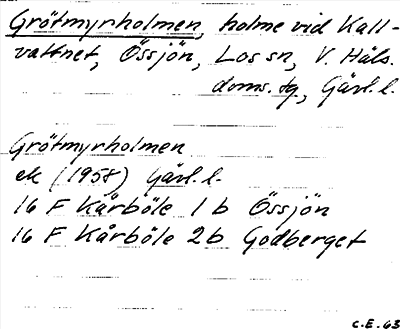 Grötmyrholmen, holme vid Kall-
vattnet, Össjön, Los sn, V. Häls.
doms. tg, Gävl. l.
Grötmyrholmen
ek (1958) Gävl. l.
16 F Kårböle 1 b Össjön
16 F Kårböle 2 b Godberget
C.E. 63